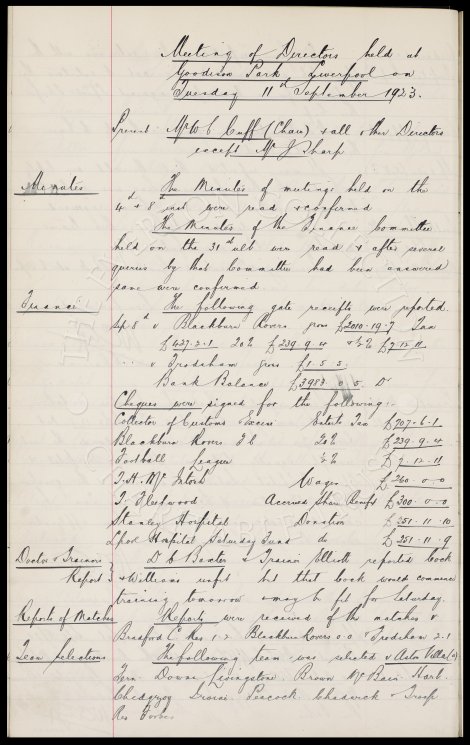 Meeting of Directors held at
Goodison Park, Liverpool on
Tuesday 11th September 1923.
Present Mr W C Cuff (Chair) & all other Directors
except Mr J Sharp
Minutes The Minutes of meetings held on the
4th & 8th inst were read & confirmed
The Minutes of the Finance Committee
held on the 31st ult were read & after several
queries by that Committee had been answered
same were confirmed.
Finance The following gate receipts were reported.
Sep 8th v Blackburn Rovers gross £2010.19.7 Tax
£427.2.1 20% £239.9.4 £7.12.11
v Frodsham gross £1.5.3
Bank Balance £3983.0.5 Dr
Cheques were signed for the following:-
Collector of Customs Excise Enterts Tax £707.6.1
Blackburn Rovers F C 20% £239.9.4
Football League £7.12.11
Wages £260.0.0
T. Fleetwood Accrued Share Benefit £300.0.0
Stanley Hospital Donation £251.11.10
Lpool Hospital Saturday Fund do £251.11.9
Doctor & Trainers Report Dr Baxter & Trainer Elliott reported Cock
& Williams unfit but that Cock would commence
training tomorrow & may be fit for Saturday.
Reports of Matches Reports were received of the matches v
Bradford C Res 1-2 Blackburn Rovers 0-0 v Frodsham 2-1
Team Selections The following team was selected v Aston Villa (a)
Fern Downs Livingstone Brown McBain Hart
Chedgzoy Irvine Peacock Chadwick & Troup
Res Forbes